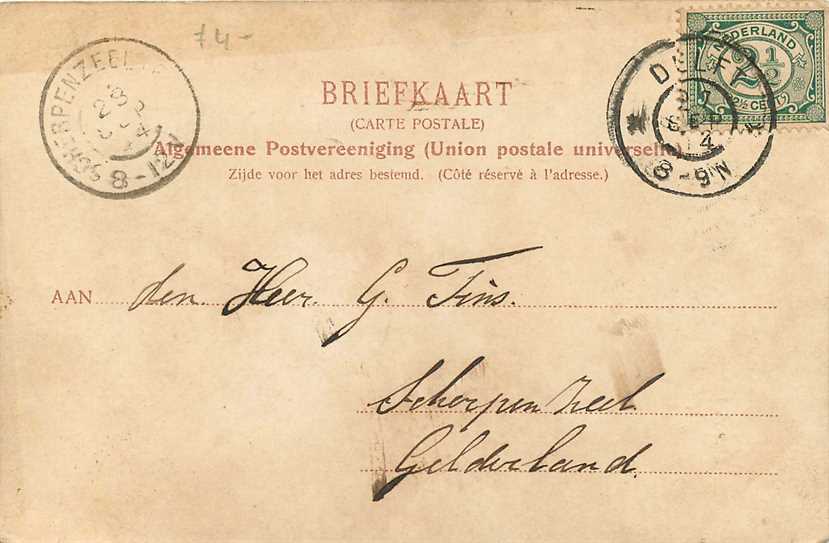 74-
SCHERPENZEEL
8-12V
BRIEFKAART
(CARTE POSTALE)
Algemeene Postvereeniging (Union postale universelle)
Zijde voor het adres bestemd. (Côté réservé à l'adresse.)
NEDERLAND
2½
2½ CENT
DELFT
SEP
14
8-9N
AAN den Heer G. Fins.
Scherpenzeel
Gelderland.